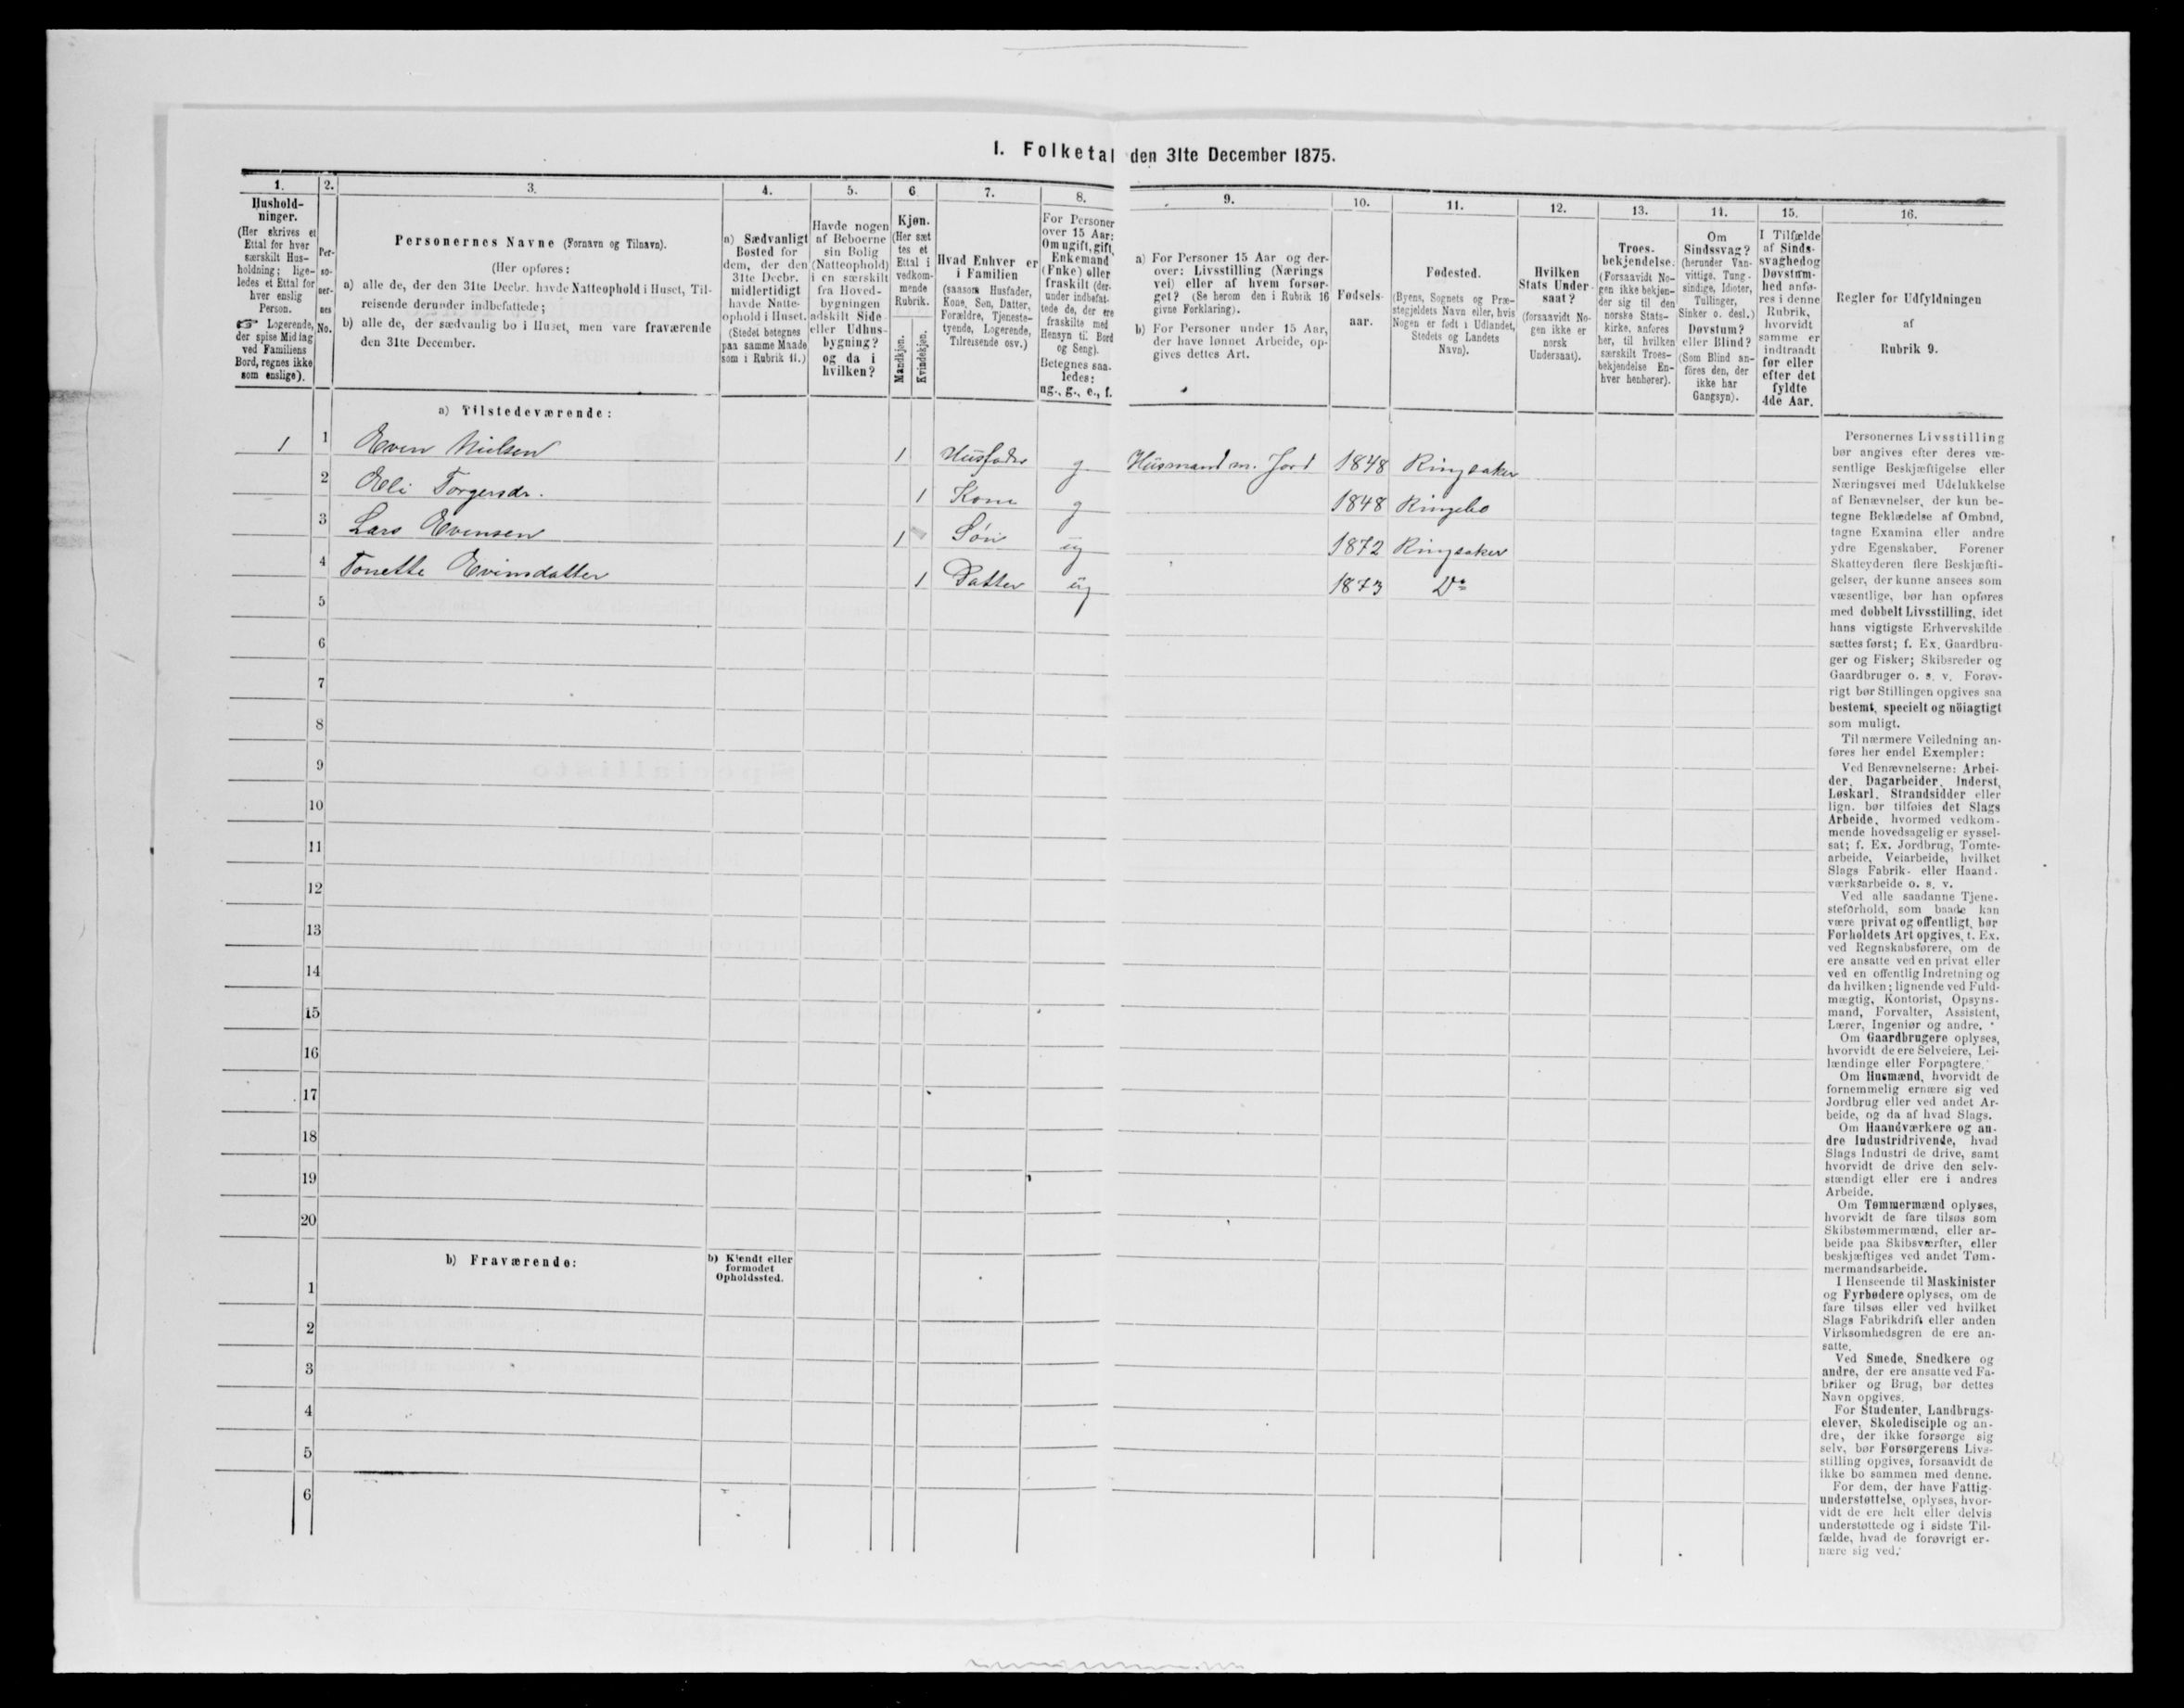 I. Folketal den 31te December 1875.
1.
Hushold-
ninger.
(Her skrives et
Ettal for hver
særskilt Hus-
holdning; lige-
ledes et Ettal for
hver enslig
Person.
☞ Logerende,
der spise Middag
ved Familiens
Bord, regnes ikke
som enslige).
2.
Per-
so-
ner-
nes
No.
3.
Personernes Navne (Fornavn og Tilnavn).
(Her opføres:
a) alle de, der den 31te Decbr. havde Natteophold i Huset, Til-
reisende derunder indbefattede;
b) alle de, der sædvanlig bo i Huset, men vare fraværende
den 31te December.
4.
a) Sædvanligt
Bosted for
dem, der den
31te Decbr.
midlertidigt
havde Natte-
ophold i Huset.
(Stedet betegnes
paa samme Maade
som i Rubrik 11.)
5.
Havde nogen
af Beboerne
sin Bolig
(Natteophold)
i en særskilt
fra Hoved-
bygningen
adskilt Side
eller Udhus-
bygning?
og da i
hvilken?
6
Kjøn.
(Her sæt
tes et
Ettal i
vedkom-
mende
Rubrik.
Mandkjøn.
Kvindekjøn.
7.
Hvad Enhver er
i Familien
(saasom Husfader,
Kone, Søn, Datter,
Forældre, Tjeneste-
tyende, Logerende,
Tilreisende osv.)
8.
For Personer
over 15 Aar:
Om ugift, gift,
Enkemand
(Enke) eller
fraskilt (der-
under indbefat-
tede de, der ere
fraskilte med
Hensyn til Bord
og Seng).
Betegnes saa-
ledes:
ug., g., e., f.
9.
a) For Personer 15 Aar og der-
over: Livsstilling (Nærings
vei) eller af hvem forsør-
get? (Se herom den i Rubrik 16
givne Forklaring).
b) For Personer under 15 Aar,
der have lønnet Arbeide, op-
gives dettes Art.
10.
Fødsels-
aar.
11.
Fødested.
(Byens, Sognets og Præ-
stegjeldets Navn eller, hvis
Nogen er født i Udlandet,
Stedets og Landets
Navn).
12.
Hvilken
Stats Under-
saat?
(forsaavidt No-
gen ikke er
norsk
Undersaat).
13.
Troes-
bekjendelse.
(Forsaavidt No-
gen ikke bekjen-
der sig til den
norske Stats-
kirke, anføres
her, til hvilken
særskilt Troes-
bekjendelse En-
hver henhører).
14.
Om
Sindssvag?
(herunder Van-
vittige, Tung-
sindige, Idioter,
Tullinger,
Sinker o. desl.)
Døvstum?
eller Blind?
(Som Blind an-
føres den, der
ikke har
Gangsyn).
15.
I Tilfælde
af Sinds-
svaghed og
Døvstum-
hed anfø-
res i denne
Rubrik,
hvorvidt
samme er
indtraadt
før eller
efter det
fyldte
4de Aar.
16.
Regler for Udfyldningen
af
Rubrik 9.
a) Tilstedeværende:
1 1 Even Nielsen 1 Husfader g Husmand m. Jord 1848 Ringsaker
2 Eli Torgersdr. 1 Kone g 1848 Ringebo
3 Lars Evensen 1 Søn ug 1872 Ringsaker
4 Tonette Evensdatter 1 Datter ug 1873 Do
5
6
7
8
9
10
11
12
13
14
15
16
17
18
19
20
b) Fraværende:
b) Kjendt eller
formodet
Opholdssted.
1
2
3
4
5
6
Personernes Livsstilling
bør angives efter deres væ-
sentlige Beskjæftigelse eller
Næringsvei med Udelukkelse
af Benævnelser, der kun be-
tegne Beklædelse af Ombud,
tagne Examina eller andre
ydre Egenskaber. Forener
Skatteyderen flere Beskjæfti-
gelser, der kunne ansees som
væsentlige, bør han opføres
med dobbelt Livsstilling, idet
hans vigtigste Erhvervskilde
sættes først; f. Ex. Gaardbru-
ger og Fisker; Skibsreder og
Gaardbruger o. s. v. Forøv-
rigt bør Stillingen opgives saa
bestemt, specielt og nöiagtigt
som muligt.
Til nærmere Veiledning an-
føres her endel Exempler:
Ved Benævnelserne: Arbei-
der, Dagarbeider, Inderst,
Løskarl, Strandsidder eller
lign. bør tilføies det Slags
Arbeide, hvormed vedkom-
mende hovedsagelig er syssel-
sat; f. Ex. Jordbrug, Tomte-
arbeide, Veiarbeide, hvilket
Slags Fabrik- eller Haand-
værksarbeide o. s. v.
Ved alle saadanne Tjene-
steforhold, som baade kan
være privat og offentligt, bør
Forholdets Art opgives, f. Ex.
ved Regnskabsførere, om de
ere ansatte ved en privat eller
ved en offentlig Indretning og
da hvilken; lignende ved Fuld-
mægtig, Kontorist, Opsyns-
mand, Forvalter, Assistent,
Lærer, Ingeniør og andre.
Om Gaardbrugere oplyses,
hvorvidt de ere Selveiere, Lei-
lændinge eller Forpagtere.
Om Husmænd, hvorvidt de
fornemmelig ernære sig ved
Jordbrug eller ved andet Ar-
beide, og da af hvad Slags.
Om Haandværkere og an-
dre Industridrivende, hvad
Slags Industri de drive, samt
hvorvidt de drive den selv-
stændigt eller ere i andres
Arbeide.
Om Tømmermænd oplyses,
hvorvidt de fare tilsøs som
Skibstømmermænd, eller ar-
beide paa Skibsværfter, eller
beskjæftiges ved andet Tøm-
mermandsarbeide.
I Henseende til Maskinister
og Fyrbødere oplyses, om de
fare tilsøs eller ved hvilket
Slags Fabrikdrift eller anden
Virksomhedsgren de ere an-
satte.
Ved Smede, Snedkere og
andre, der ere ansatte ved Fa-
briker og Brug, bør dettes
Navn opgives.
For Studenter, Landbrugs-
elever, Skoledisciple og an-
dre, der ikke forsørge sig
selv, bør Forsørgerens Livs-
stilling opgives, forsaavidt de
ikke bo sammen med denne.
For dem, der have Fattig-
understøttelse, oplyses, hvor-
vidt de ere helt eller delvis
understøttede og i sidste Til-
fælde, hvad de forøvrigt er-
nære sig ved.